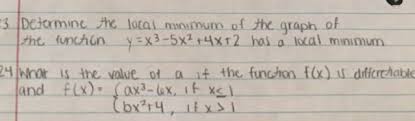 23 Determine the local minimum of the graph of
the function y=x³-5x²+4x+2 has a local minimum
24 What is the value of a if the function f(x) is differentiable
and f(x)= { ax³-6x, if x≤1
{ bx²+4, if x>1